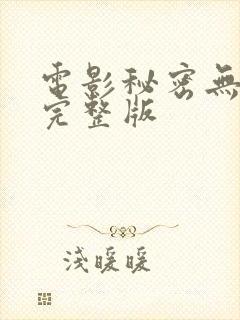 電影秘密無
完整版
淺暖暖